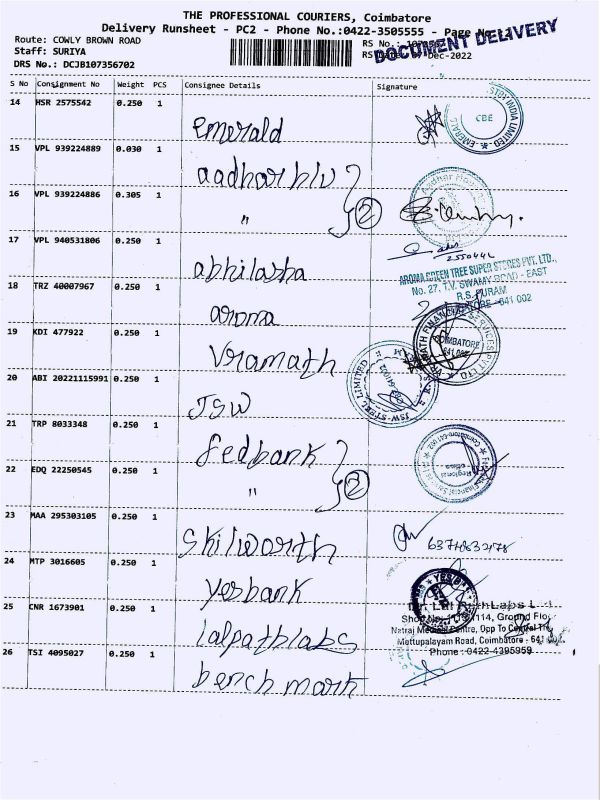 THE PROFESSIONAL COURIERS, Coimbatore
Delivery Runsheet - PC2 - Phone No.:0422-3505555 - Page No.
DOCUMENT DELIVERY
Route: COWLY BROWN ROAD
Staff: SURIYA
DRS No.: DCJB107356702
RS No.:
Dec-2022
S No Consignment No Weight PCS Consignee Details Signature
14 HSR 2575542 0.250 1 Emerald
CBE
15 VPL 939224889 0.030 1 aadhar hlv
16 VPL 939224886 0.305 1 " 2
17 VPL 940531806 0.250 1 abhilasha
18 TRZ 40007967 0.250 1 aroma
AROMA GREEN TREE SUPER STORES PVT. LTD.,
No. 27, T.V. SWAMY ROAD - EAST
R.S. PURAM
COIMBATORE - 641 002
19 KDI 477922 0.250 1 Vramath
COIMBATORE
641 002
20 ABI 20221115991 0.250 1 JSW
JSW STEEL LIMITED
21 TRP 8033348 0.250 1 fedbank
22 EDQ 22250545 0.250 1 " 2
23 MAA 295303105 0.250 1 Skilworth
24 MTP 3016605 0.250 1 yesbank
25 CNR 1673901 0.250 1 lalpathlabs
Dr. Lal PathLabs
Ground Floor
Natraj Medical Centre, Opp To Central
Mettupalayam Road, Coimbatore - 641
Phone : 0422-4395959
26 TSI 4095027 0.250 1 bench mark